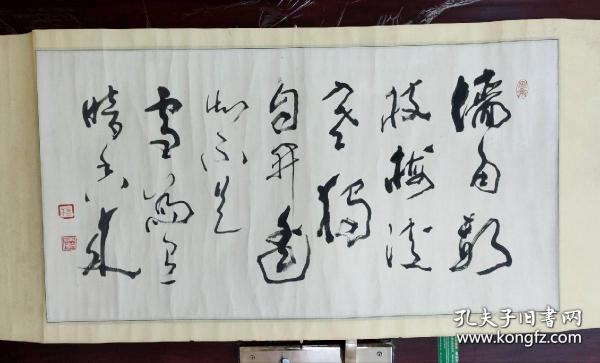 墙角数
枝梅凌
寒独
自开遥
知不是
雪为有
暗香来
孔夫子旧书网
www.kongfz.com